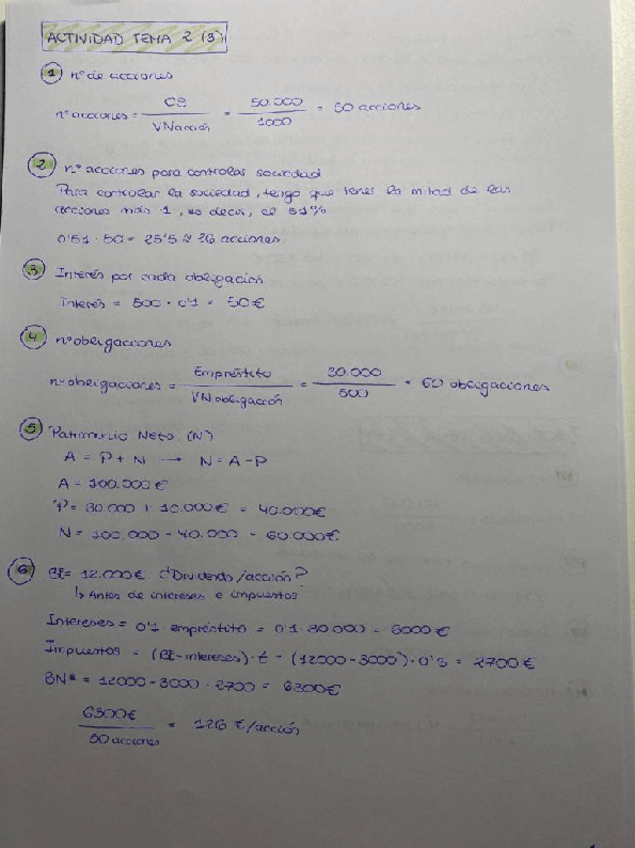 ACTIVIDAD TEMA 2 (3)
1 nº de acciones
nº acciones = CS / VN acción = 50.000 / 1000 = 50 acciones
2 nº acciones para controlar sociedad
Para controlar la sociedad, tengo que tener la mitad de las
acciones más 1, es decir, el 51%
0'51 · 50 = 25'5 ≈ 26 acciones.
3 Interés por cada obligación
Interés = 500 · 0'1 = 50€
4 nº obligaciones
nº obligaciones = Empréstito / VN obligación = 30.000 / 500 = 60 obligaciones
5 Patrimonio Neto (N)
A = P + N → N = A - P
A = 100.000€
P = 30.000 + 10.000€ = 40.000€
N = 100.000 - 40.000 = 60.000€
6 BE = 12.000€. ¿Dividendo/acción?
↳ Antes de intereses e impuestos
Intereses = 0'1 · empréstito = 0'1 · 30.000 = 3000€
Impuestos = (BE - intereses) · t = (12000 - 3000) · 0'3 = 2700€
BN = 12000 - 3000 - 2700 = 6300€
6300€ / 50 acciones = 126 €/acción